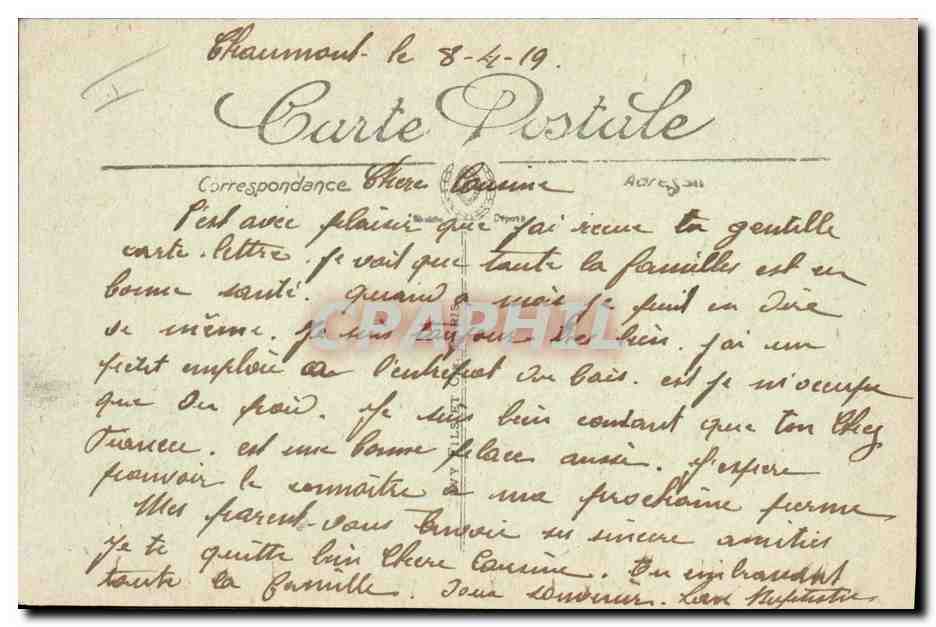 Chaumont le 8-4-19.
Carte Postale
Correspondance Chere Cousine Adresse
C'est avec plaisir que j'ai recue ta gentille
carte-lettre. Je voit que toute la familles est en
bonne santé. quand a moi je puit en dire
de même. Je suis toujours tres bien. j'ai un
petit emploie a l'entrepot de bois. est je m'occupe
que du poid. Je suis bien contant que ton Cher
Fiancee. est une bonne place aussi. J'espere
pouvoir le connaître a ma prochaine perme
Mes parent vous envoie ses sincere amities
Je te quitte bien Chere Cousine. En embrassant
toute la famille. Ton cousin.
LEVY FILS ET Cie PARIS
CPAPHIL